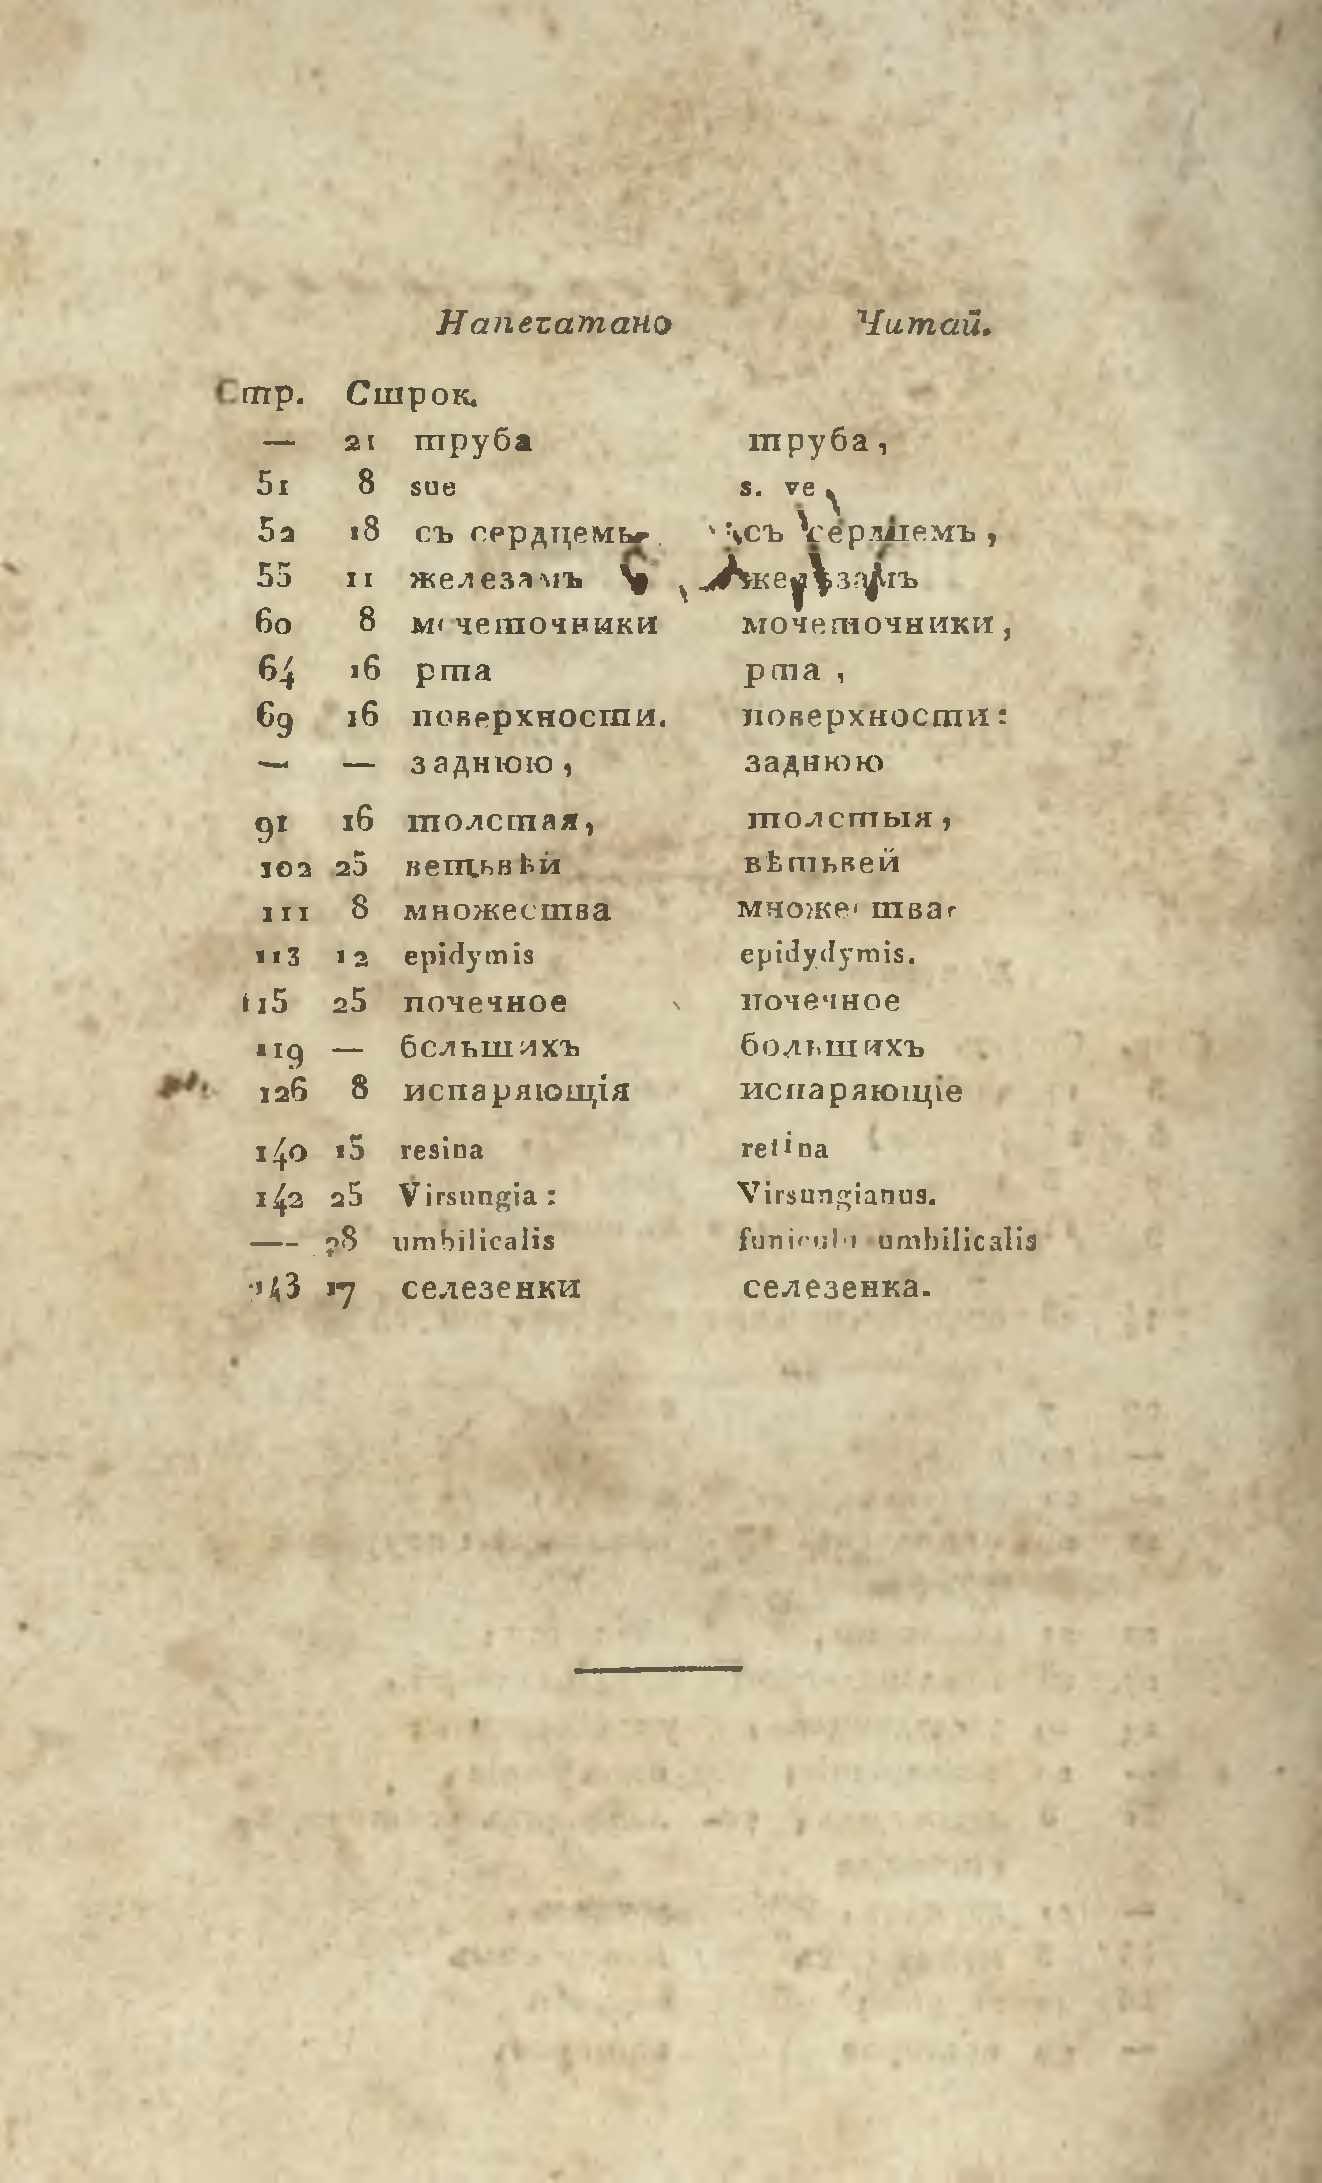 Напечатано Читай.
Стр. Строк.
— 21 труба труба,
51 8 sue s. ve
52 18 съ сердцемъ съ сердцемъ,
55 11 железамъ желѣзамъ
60 8 мочеточники мочеточники,
64 16 рта рта ,
69 16 поверхности. поверхности:
— — заднюю, заднюю
91 16 толстая, толстыя,
102 25 ветьвѣй вѣтьвей
111 8 множества множества
113 12 epidymis epidydymis.
115 25 почечное почечное
119 — большихъ большихъ
126 8 испаряющія испаряющіе
140 15 resina retina
142 25 Virsungia: Virsungianus.
— 28 umbilicalis umbilicalis
143 17 селезенки селезенка.